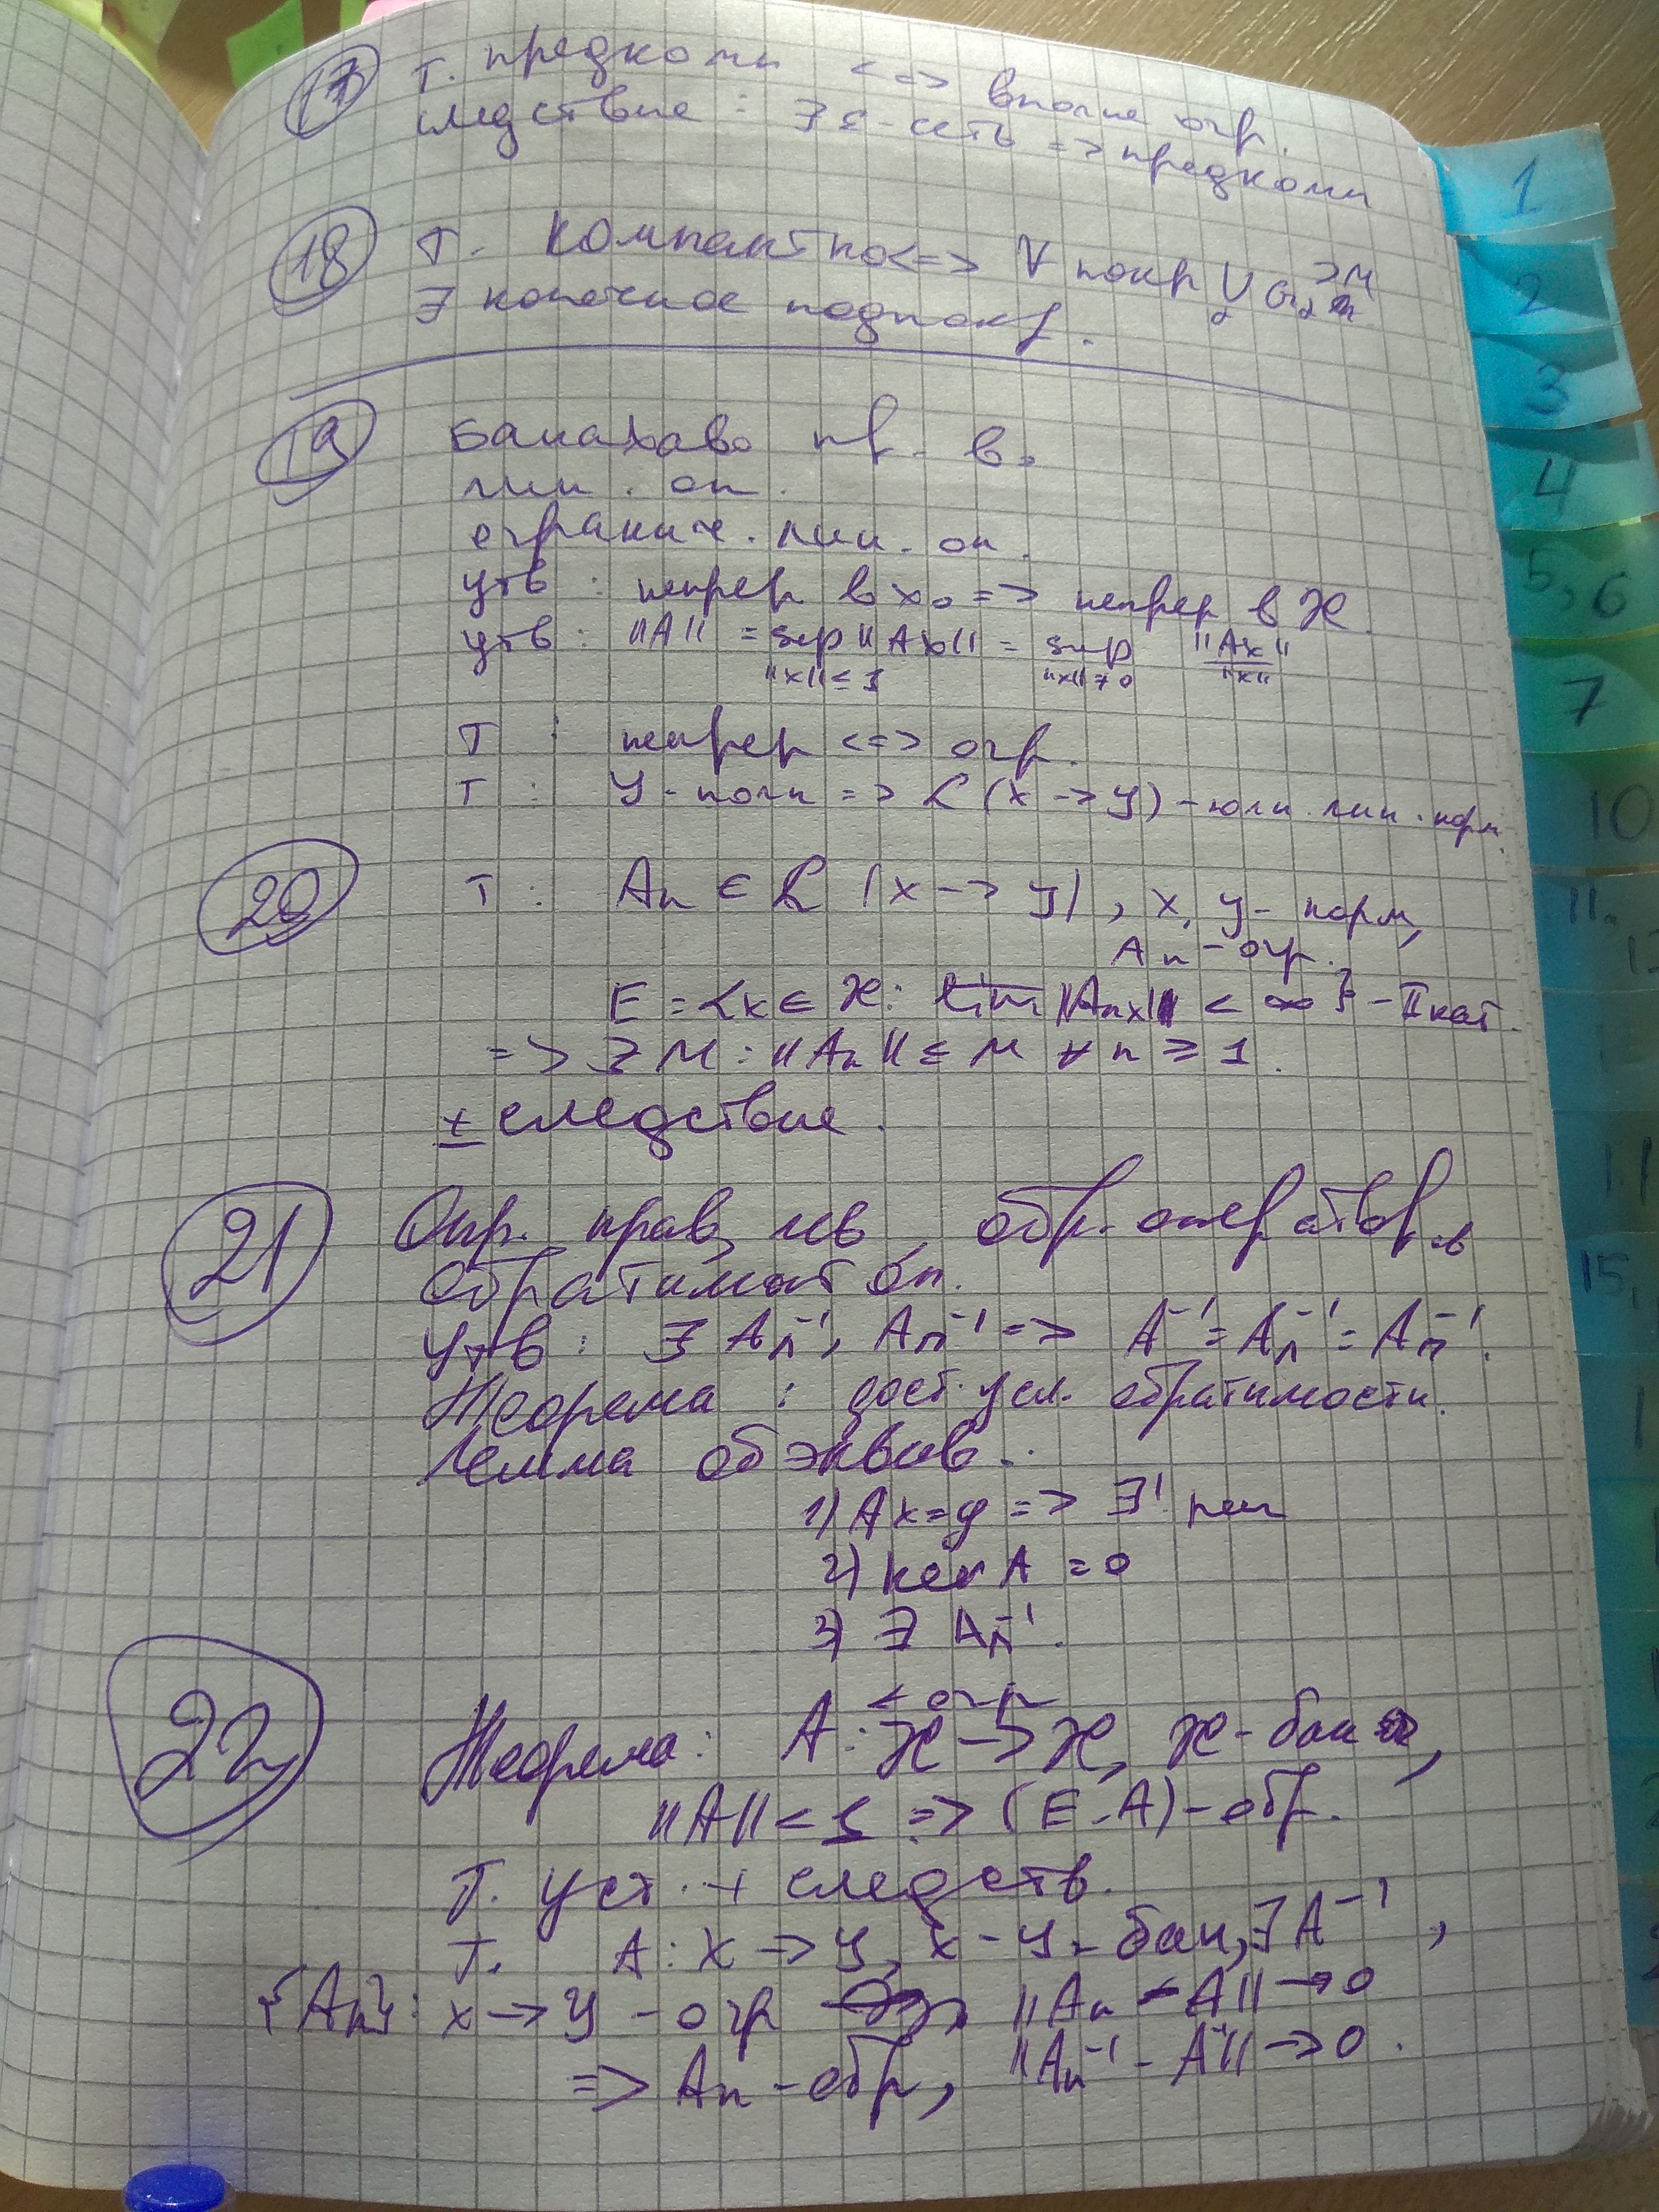 17 Т. предкомп <=> вполне огр.
следствие : ∃ ε-сеть => предкомп
18 Т. компактно <=> ∀ покр ⋃_α G_α ⊃ M
∃ конечное подпокр.
19 Банахово пр-во
лин. оп.
огранич. лин. оп.
утв : непрер в x₀ => непрер в X.
утв : ||A|| = sup ||Ax|| = sup ||Ax||/||x||
||x|| ≤ 1 ||x|| ≠ 0
Т : непрер <=> огр.
Т : Y - полн => L (X -> Y) - полн. лин. норм.
20 Т : Aₙ ∈ L (X -> Y), X, Y - норм,
Aₙ - огр.
E = {x ∈ X : lim ||Aₙx|| < ∞} - II кат.
=> ∃ M : ||Aₙ|| ≤ M ∀ n ≥ 1.
± следствие.
21 Опр. прав, лев, обр. операторов
обратимый оп.
Утв : ∃ Aл⁻¹, Aп⁻¹ => A⁻¹ = Aл⁻¹ = Aп⁻¹.
Теорема : дост. усл. обратимости.
Лемма об эквив.
1) Ax = y => ∃! реш
2) ker A = 0
3) ∃ Aл⁻¹.
22 Теорема : A : X -> X, X - бан,
огр
||A|| < 1 => (E - A) - обр.
Т. уст. + следств.
Т. A : X -> Y, X - Y - бан, ∃ A⁻¹,
{Aₙ} : X -> Y - огр ||Aₙ - A|| -> 0
=> Aₙ - обр, ||Aₙ⁻¹ - A⁻¹|| -> 0.
1
2
3
4
5, 6
7
10
11,
15,